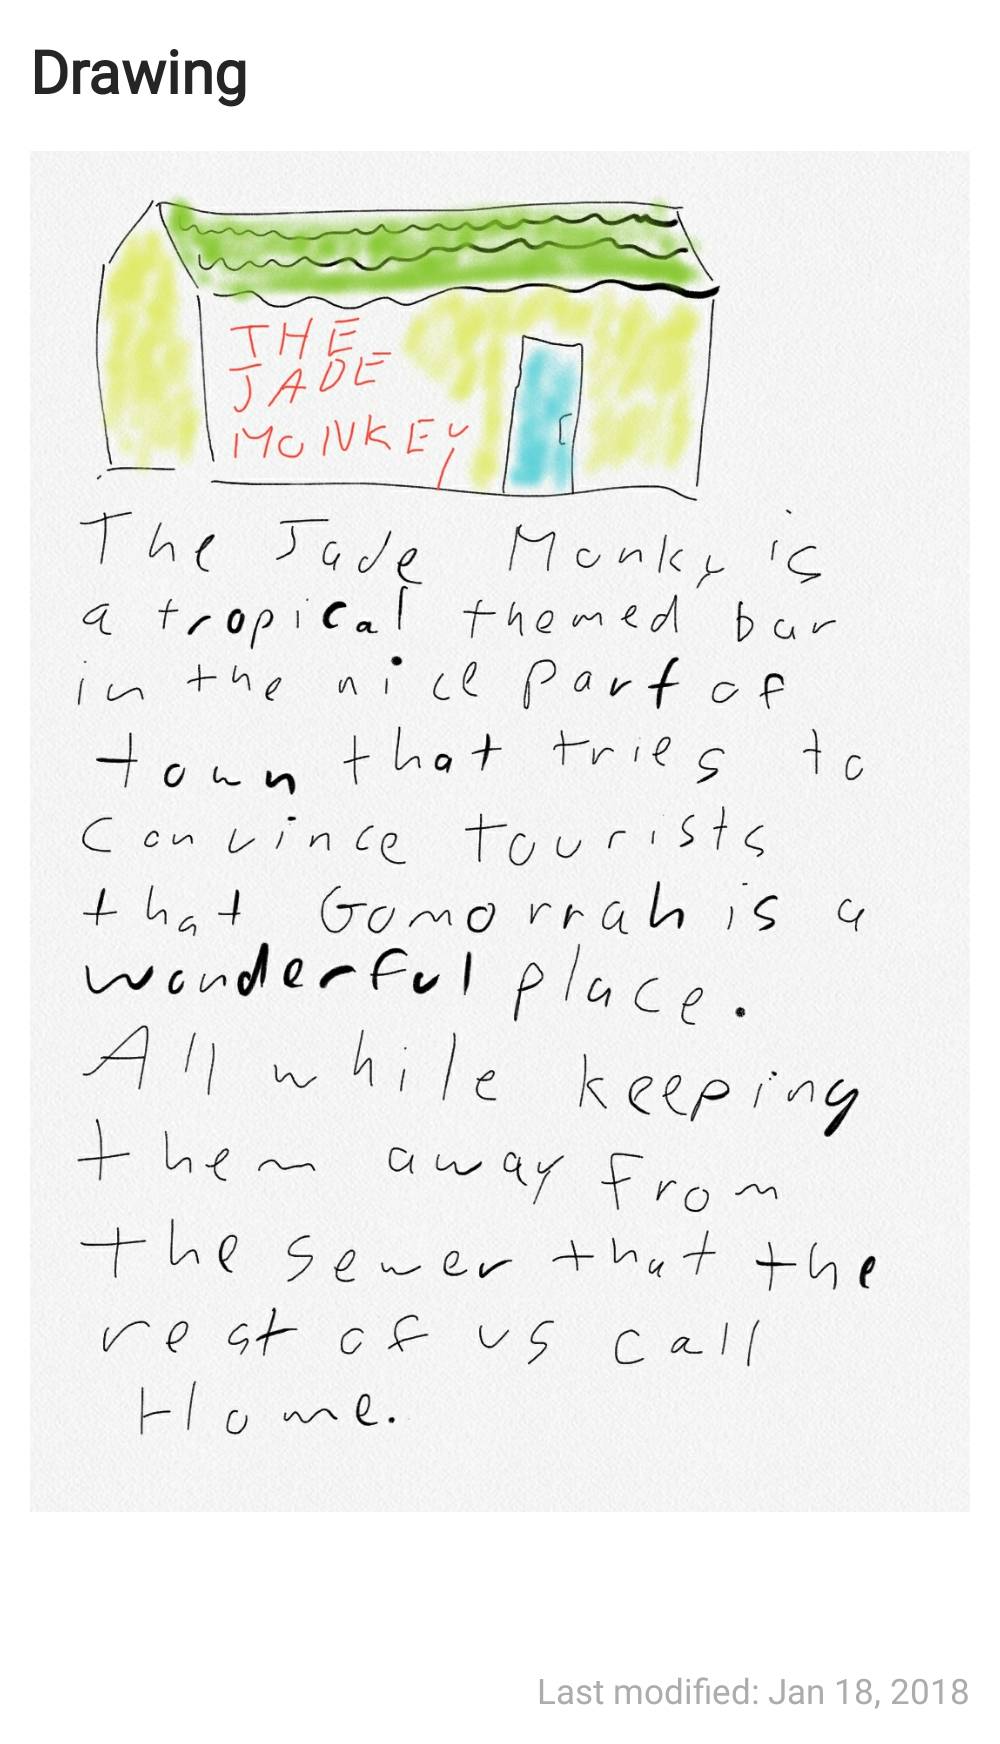 Drawing
THE
JADE
MONKEY
The Jade Monky is
a tropical themed bar
in the nice part of
town that tries to
convince tourists
that Gomorrah is a
wonderful place.
All while keeping
them away from
the sewer that the
rest of us call
Home.
Last modified: Jan 18, 2018